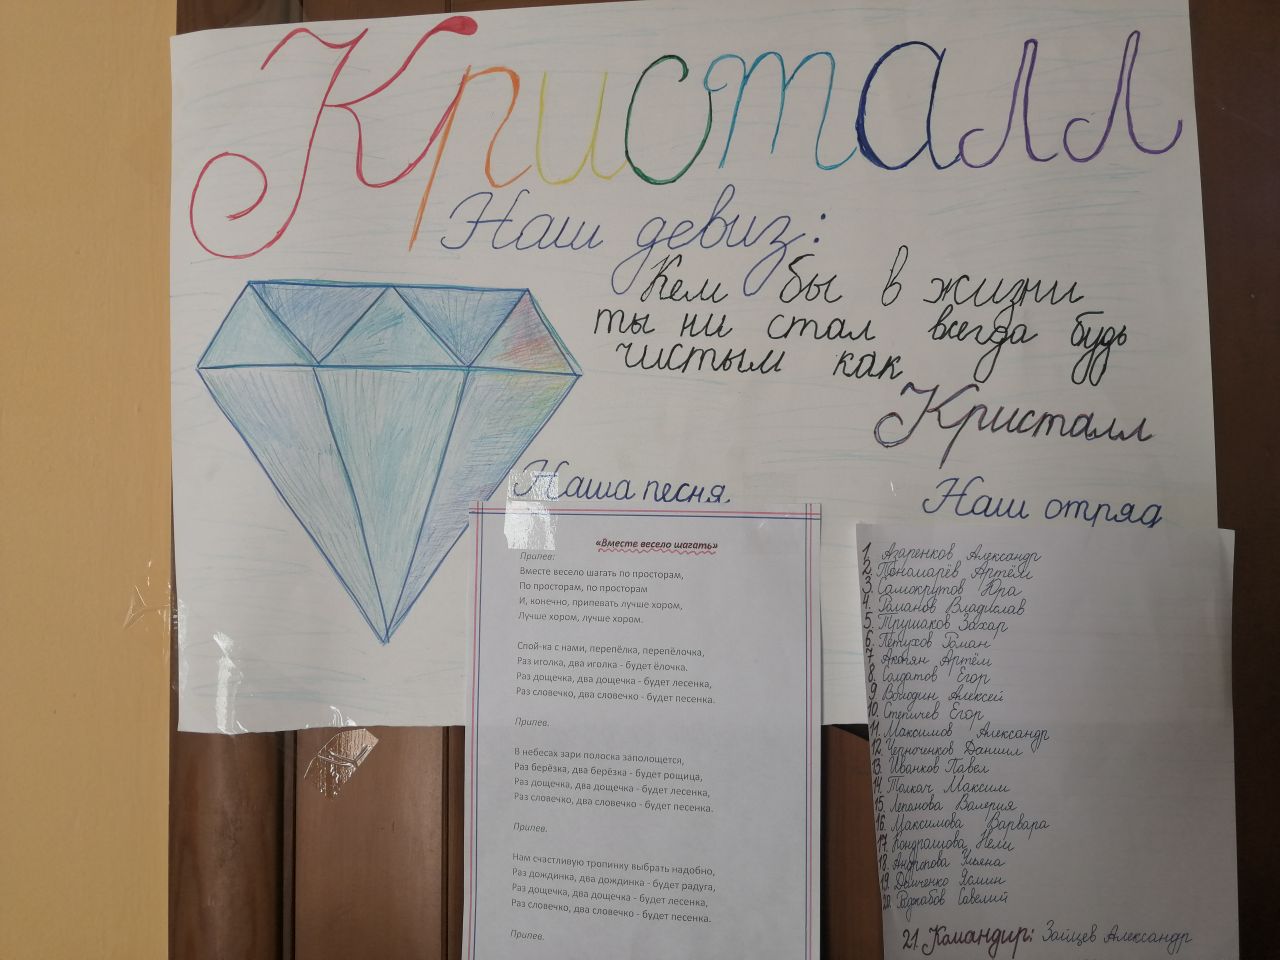 Кристалл
Наш девиз:
Кем бы в жизни
ты ни стал всегда будь
чистым как
Кристалл
Наша песня.
«Вместе весело шагать»
Припев:
Вместе весело шагать по просторам,
По просторам, по просторам
И, конечно, припевать лучше хором,
Лучше хором, лучше хором.
Спой-ка с нами, перепёлка, перепёлочка,
Раз иголка, два иголка - будет ёлочка.
Раз дощечка, два дощечка - будет лесенка,
Раз словечко, два словечко - будет песенка.
Припев.
В небесах зари полоска заполощется,
Раз берёзка, два берёзка - будет рощица,
Раз дощечка, два дощечка - будет лесенка,
Раз словечко, два словечко - будет песенка.
Припев.
Нам счастливую тропинку выбрать надобно,
Раз дождинка, два дождинка - будет радуга,
Раз дощечка, два дощечка - будет лесенка,
Раз словечко, два словечко - будет песенка.
Припев.
Наш отряд
1. Азаренков Александр
2. Пономарёв Артём
3. Самокрутов Юра
4. Романов Владислав
5. Трушаков Захар
6. Петухов Роман
7. Акопян Артём
8. Солдатов Егор
9. Володин Алексей
10. Егор
11. Максимов Александр
12. Черноченков Даниил
13. Иванков Павел
14. Толкач Максим
15. Лепанова Валерия
16. Максимова Варвара
17. Кондрашова Нели
18. Андропова Ульяна
19. Демченко
20. Раджабов Савелий
21. Командир: Зайцев Александр